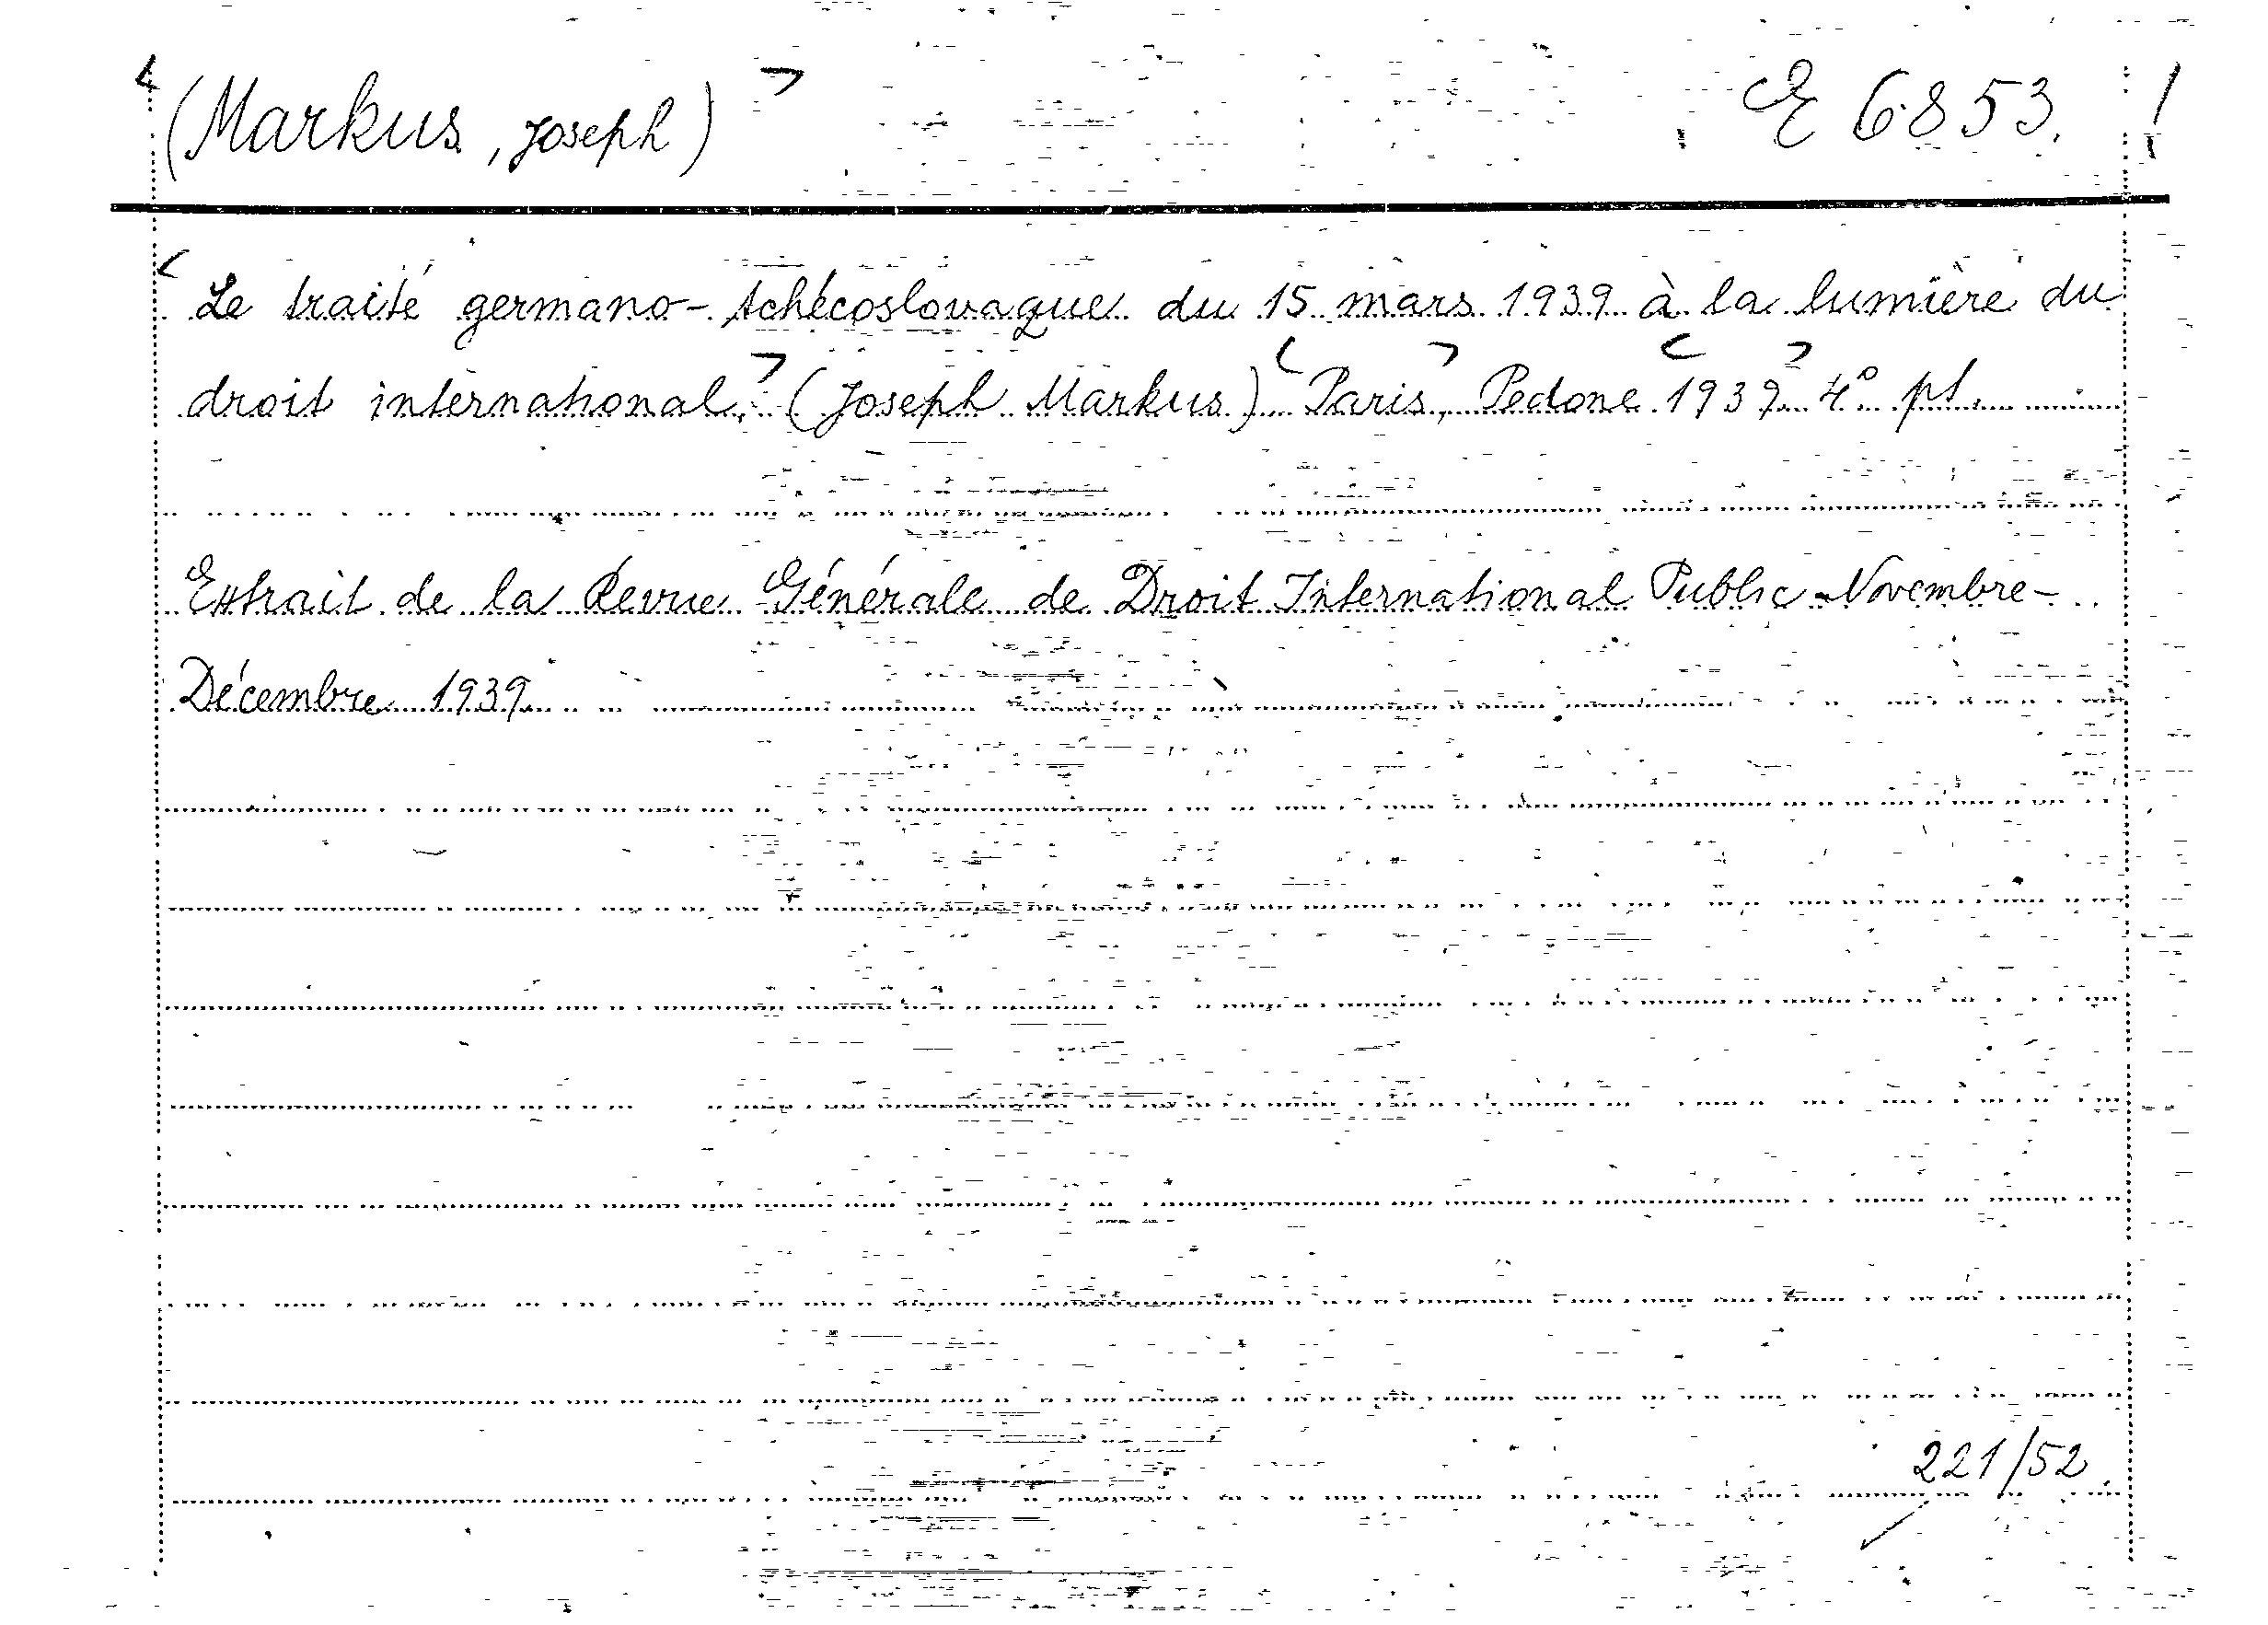 (Markus, Joseph) E 6853.
Le traité germano-tchécoslovaque du 15 mars 1939 à la lumière du
droit international. (Joseph Markus) Paris, Pedone 1939 4° pl.
Extrait de la Revue Générale de Droit International Public - Novembre-
Décembre 1939
221/52